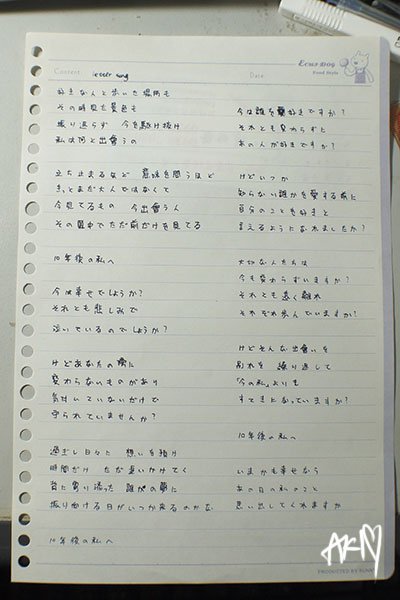 Content letter song
Date
ECHI DOG
Food Style
好きな人と歩いた場所も
その時見た景色も
振り返らず 今を駆け抜け
私は何と出會うの
立ち止まるなど 意味を問うほど
きっとまだ大人ではなくて
今見てるもの 今出會う人
その中でただ前だけを見てる
10年後の私へ
今は幸せでしょうか?
それとも悲しみで
泣いているのでしょうか?
けどあなたの傍に
変わらないものがあり
気付いていないだけで
守られていませんか?
過ぎし日々に 想いを預け
時間だけ ただ追いかけてく
背に寄り添った 誰かの夢に
振り向ける日がいつか来るのかな
10年後の私へ
今は誰を好きですか?
それとも変わらずに
あの人が好きですか?
けどいつか
知らない誰かを愛する前に
自分のことを好きと
言えるようになれましたか?
大切な人たちは
今も変わらずいますか?
それとも遠く離れ
それぞれ歩んでいますか?
けどそんな出會いを
別れを 繰り返して
「今の私」よりも
すてきになっていますか?
10年後の私へ
いまがも幸せなら
あの日の私のこと
思い出してくれますか
AKM